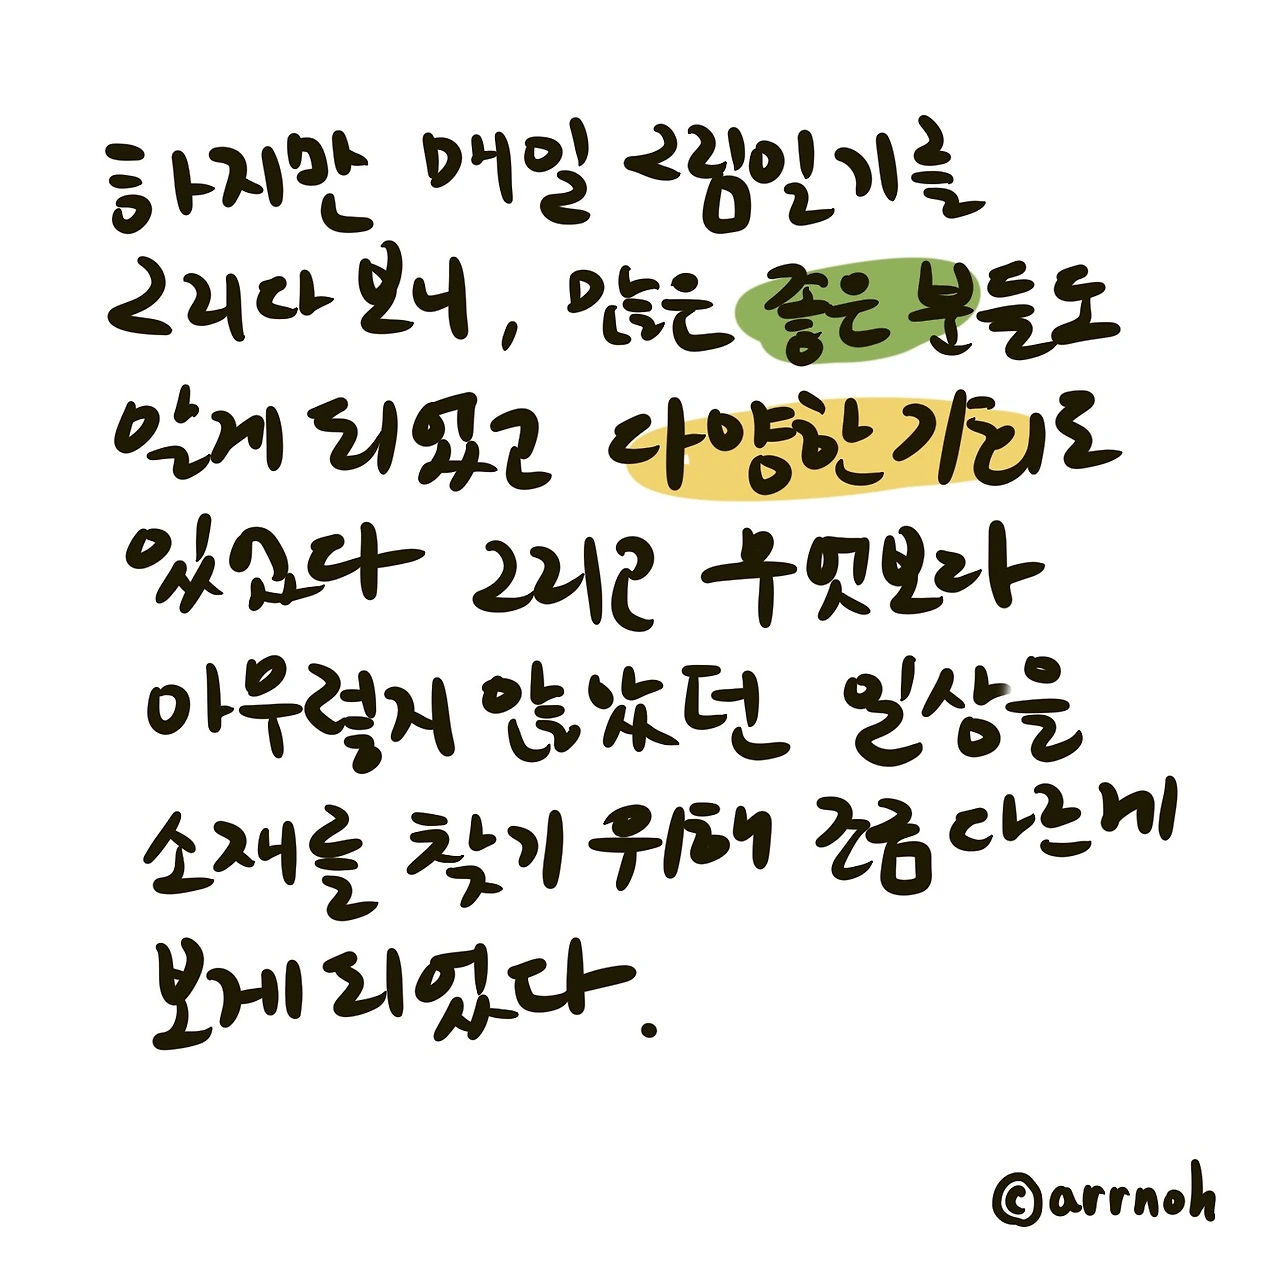 하지만 매일 그림일기를
그리다 보니, 많은 좋은 분들도
알게 되었고 다양한 기회도
있었다 그리고 무엇보다
아무렇지 않았던 일상을
소재를 찾기 위해 조금 다르게
보게 되었다.
©arrnoh